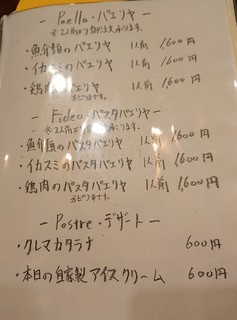 — Paella・パエリヤ —
※2人前より御注文承ります。
・魚介類のパエリヤ 1人前 1,600円
・イカスミのパエリヤ 1人前 1,600円
・鶏肉のパエリヤ 1人前 1,600円
— Fideo・パスタパエリヤ —
※2人前より御注文承ります。
・魚介類のパスタパエリヤ 1人前 1,600円
・イカスミのパスタパエリヤ 1人前 1,600円
・鶏肉のパスタパエリヤ 1人前 1,600円
— Postre・デザート —
・クレマカタラナ 600円
・本日の自家製アイスクリーム 600円